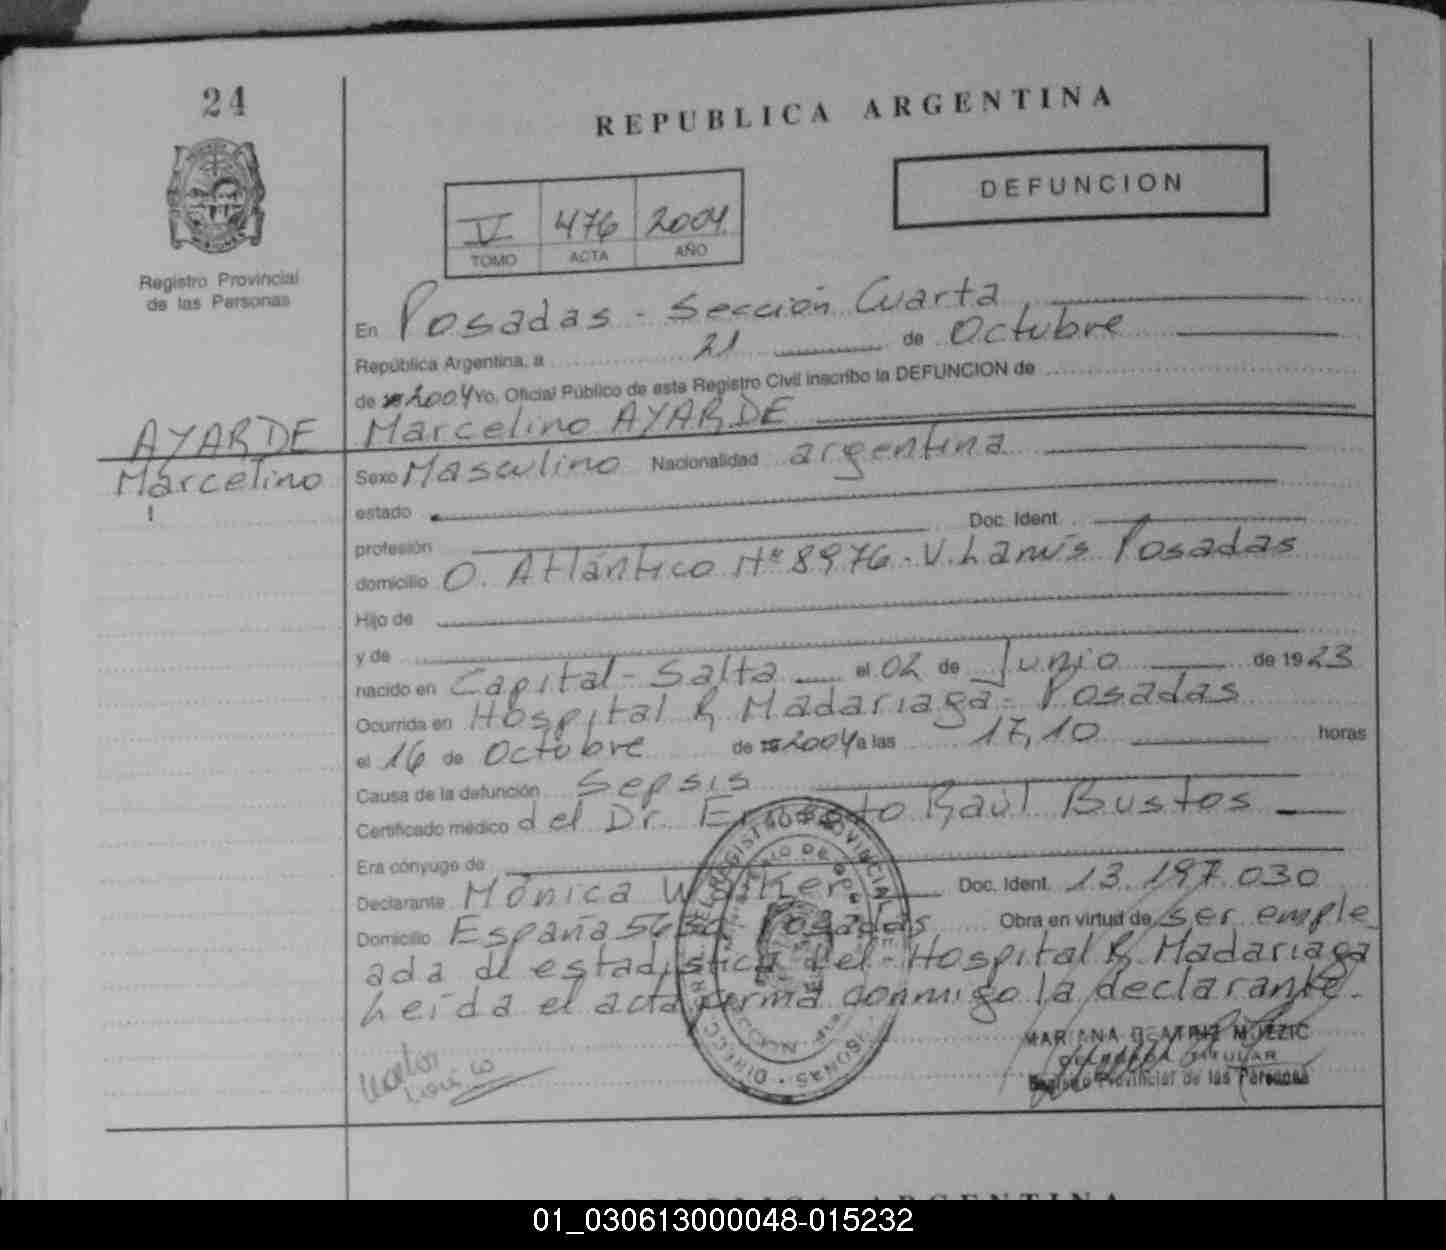 24
REPUBLICA ARGENTINA
DEFUNCION
V 476 2004
TOMO ACTA AÑO
Registro Provincial
de las Personas
En Posadas - Sección Cuarta
República Argentina, a 21 de Octubre
de 2004 Yo, Oficial Público de este Registro Civil inscribo la DEFUNCION de
AYARDE
Marcelino
Marcelino AYARDE
Sexo Masculino Nacionalidad argentina
estado
profesión Doc. Ident.
domicilio O. Atlántico Nº 8976 - V. Lanús Posadas
Hijo de
y de
nacido en Capital - Salta el 02 de Junio de 1923
Ocurrida en Hospital R. Madariaga - Posadas
el 16 de Octubre de 2004 a las 17,10 horas
Causa de la defunción Sepsis
Certificado médico del Dr. Ernesto Raúl Bustos
Era cónyuge de
Declarante Mónica Doc. Ident. 13.197.030
Domicilio España Posadas Obra en virtud de ser emple
ada de estadística del Hospital R. Madariaga
Leída el acta firma conmigo la declarante.
MARIANA BEATRIZ
TITULAR
Registro Provincial de las Personas
01_030613000048-015232